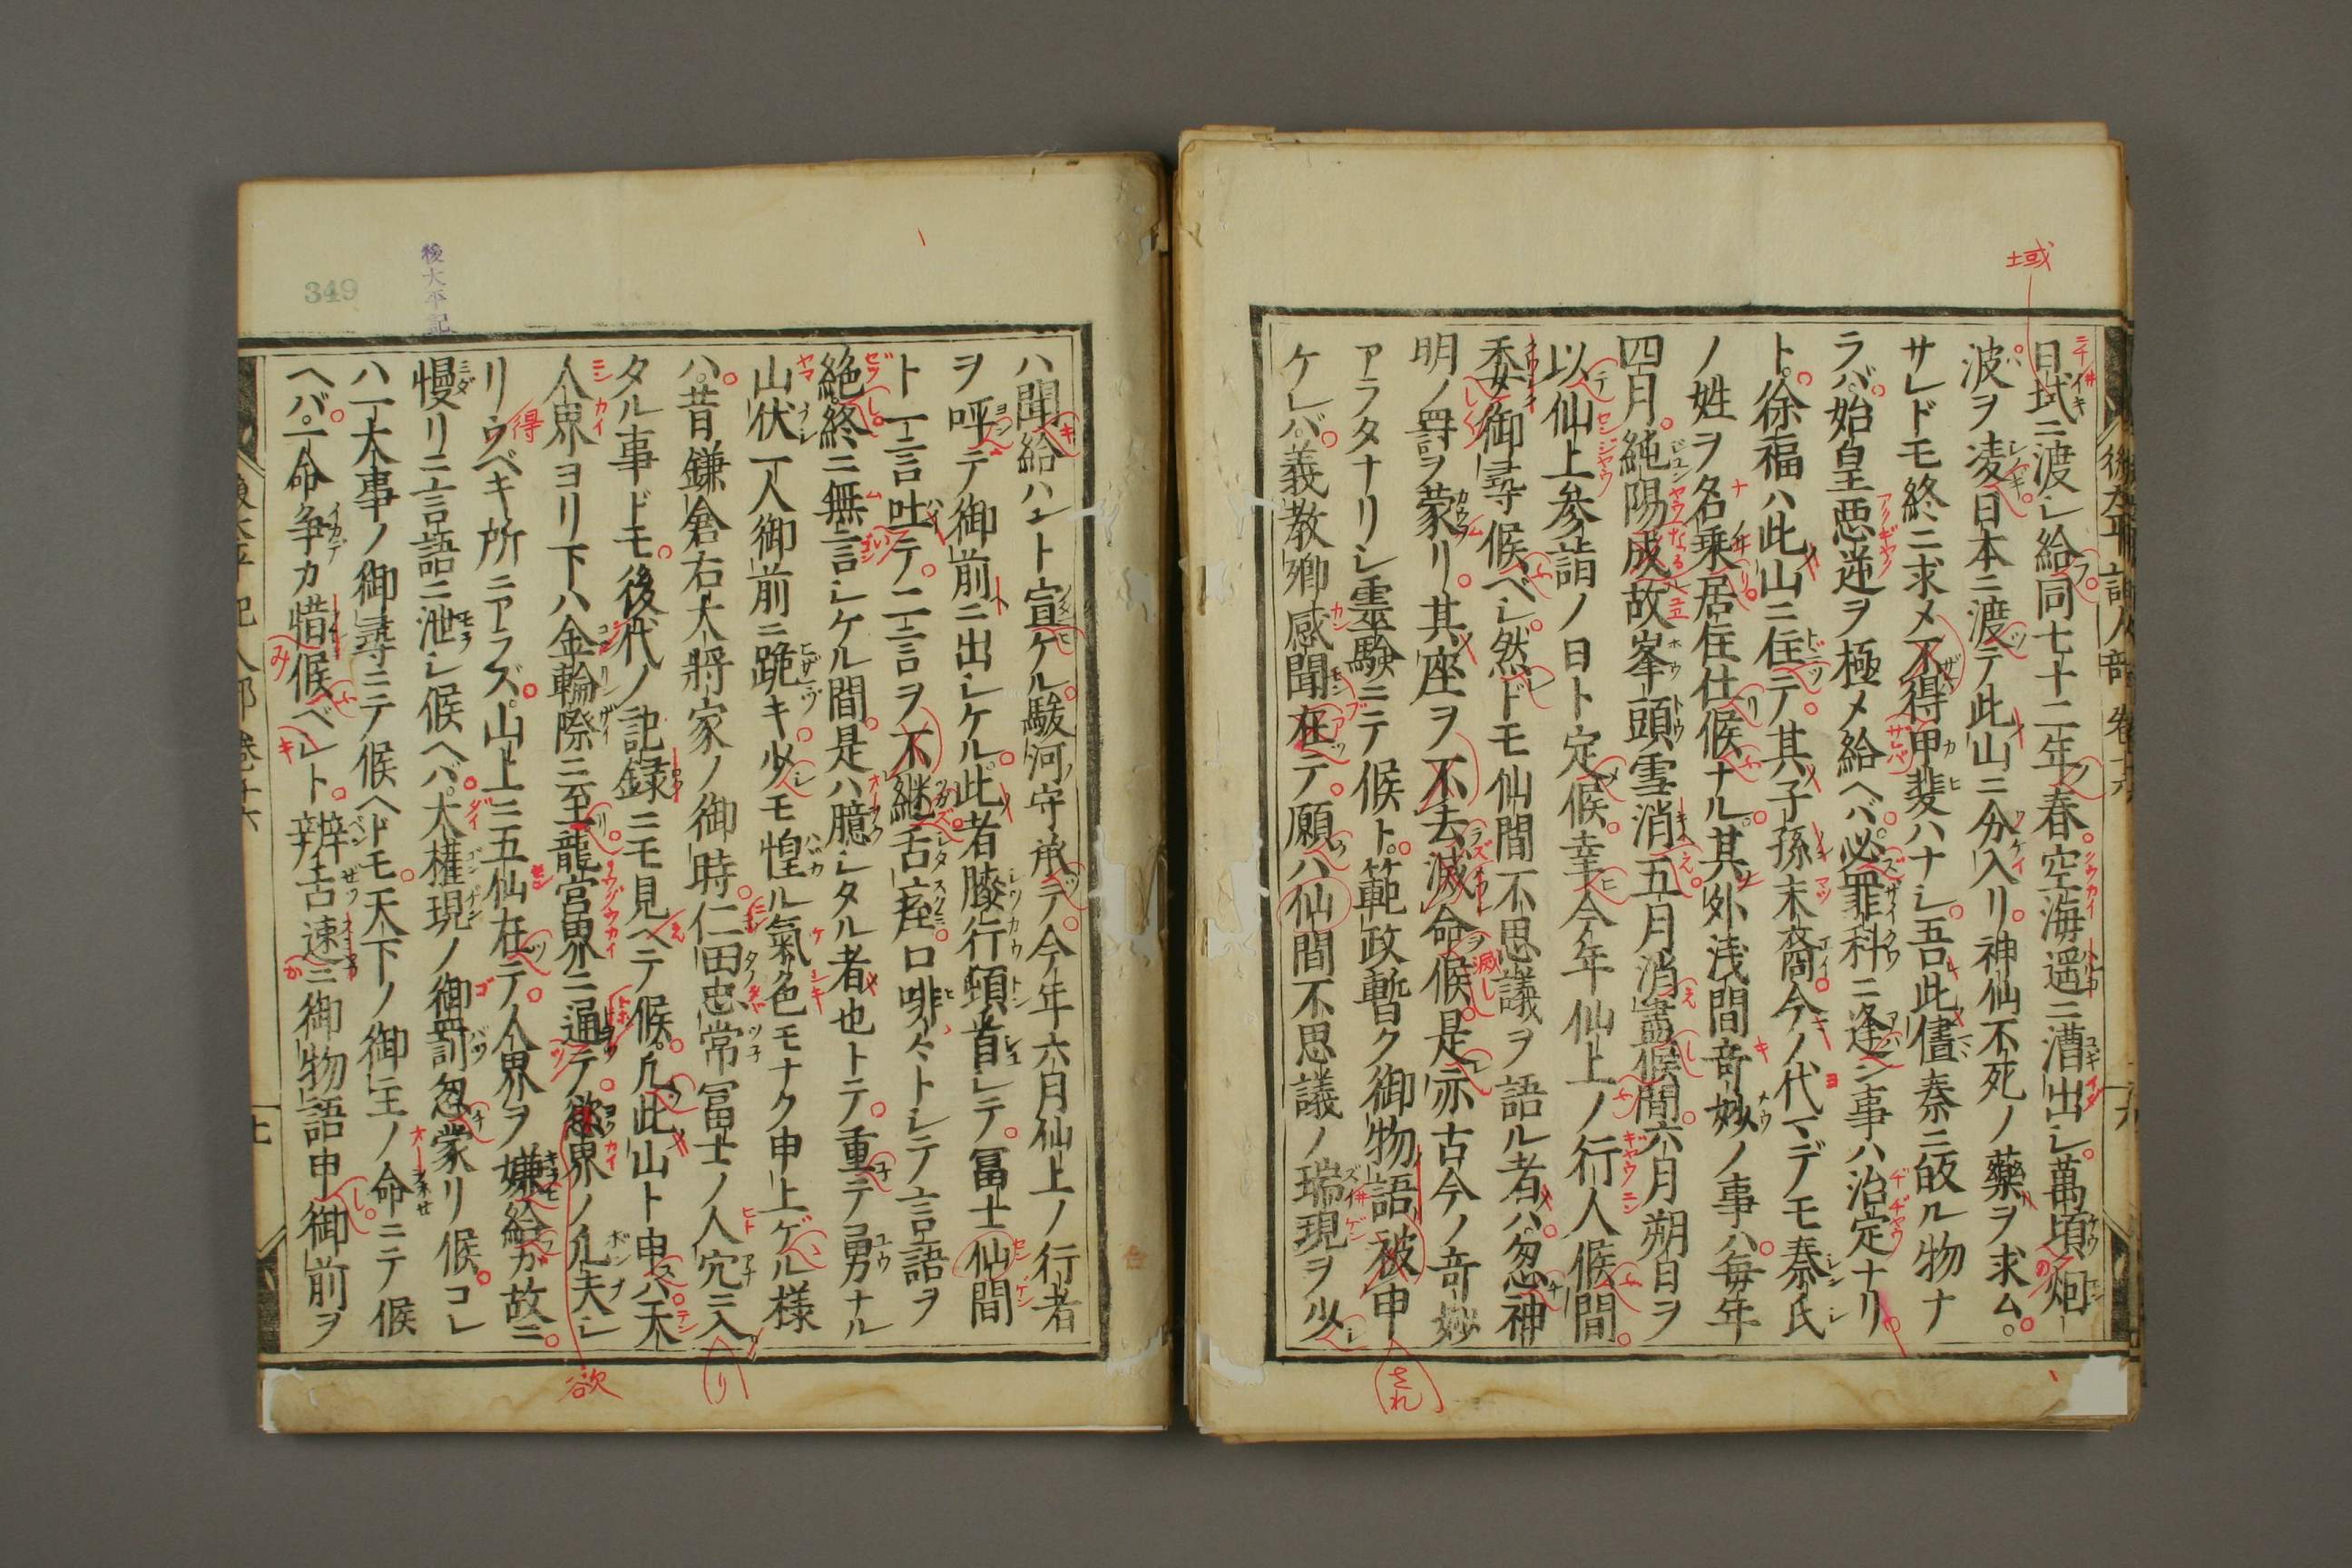 域
後太平記人部 卷十六
日域ニ渡シ給同七十二年春空海遥ニ漕出シ萬頃烟
波ヲ凌日本ニ渡テ此山ニ分入リ神仙不死ノ藥ヲ求ム
サレドモ終ニ求メ不得甲斐ハナシ吾此儘秦ニ皈ル物ナ
ラバ始皇悪逆ヲ極メ給ヘバ必罪科ニ逢ン事ハ治定ナリ
ト徐福ハ此山ニ住テ其子孫末裔今ノ代マデモ秦氏
ノ姓ヲ名乗居住仕候ナル其外浅間奇妙ノ事ハ毎年
四月純陽成故峯頭雪消五月消盡候間六月朔日ヲ
以仙上参詣ノ日ト定候幸今年仙上ノ行人候間
委御尋候ベシ然ドモ仙間不思議ヲ語ル者ハ忽神
明ノ罸ヲ蒙リ其座ヲ不去滅命候是亦古今ノ奇妙
アラタナリシ霊驗ニテ候ト範政暫ク御物語被申
ケレバ義教卿感聞在テ願ハ仙間不思議ノ瑞現ヲ少
され
349
後太平記
ハ聞給ハント宣ケル駿河守承テ今年六月仙上ノ行者
ヲ呼テ御前ニ出シケル此者膝行頓首シテ冨士仙間
ト一言吐テ二言ヲ不継舌痙口啡々トシテ言語ヲ
絶終ニ無言シケル間是ハ臆シタル者也トテ重テ勇ナル
山伏一人御前ニ跪キ少モ惶ル氣色モナク申上ゲル様
ハ昔鎌倉右大將家ノ御時仁田忠常冨士ノ人穴ニ入
タル事ドモ後代ノ記録ニモ見ヘテ候凢此山ト申ハ天
人界ヨリ下ハ金輪際ニ至龍宮界ニ通テ慾界ノ凡夫シ
リウベキ所ニアラズ山上ニ五仙在テ人界ヲ嫌給ガ故ニ
慢リニ言語ニ泄シ候ヘバ大權現ノ御罰忽蒙リ候コレ
ハ一大事ノ御尋ニテ候ヘドモ天下ノ御主ノ命ニテ候
ヘバ一命争カ惜候ベシト辨舌速ニ御物語申御前ヲ
欲
り